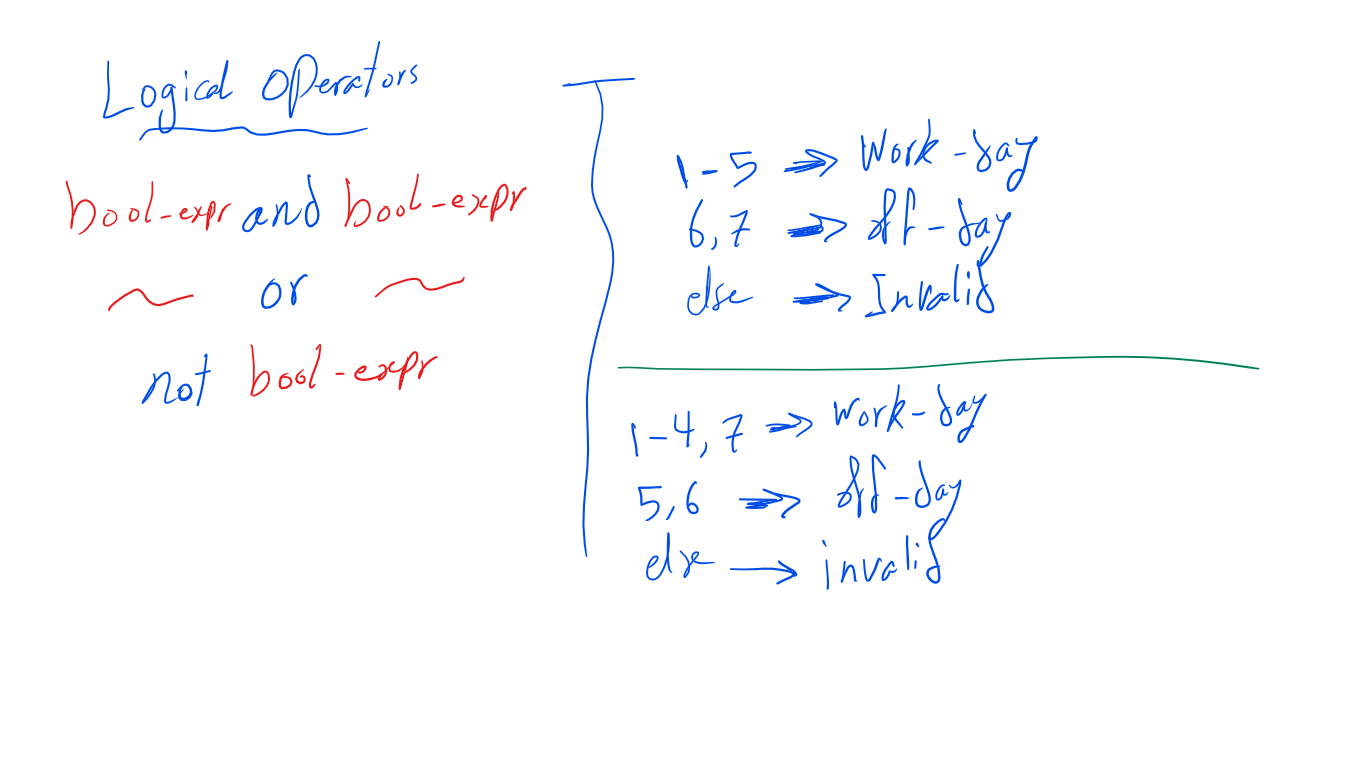 Logical Operators
bool-expr and bool-expr
or
not bool-expr
1-5 ⇒ Work-day
6,7 ⇒ off-day
else ⇒ Invalid
1-4,7 ⇒ work-day
5,6 ⇒ off-day
else → invalid